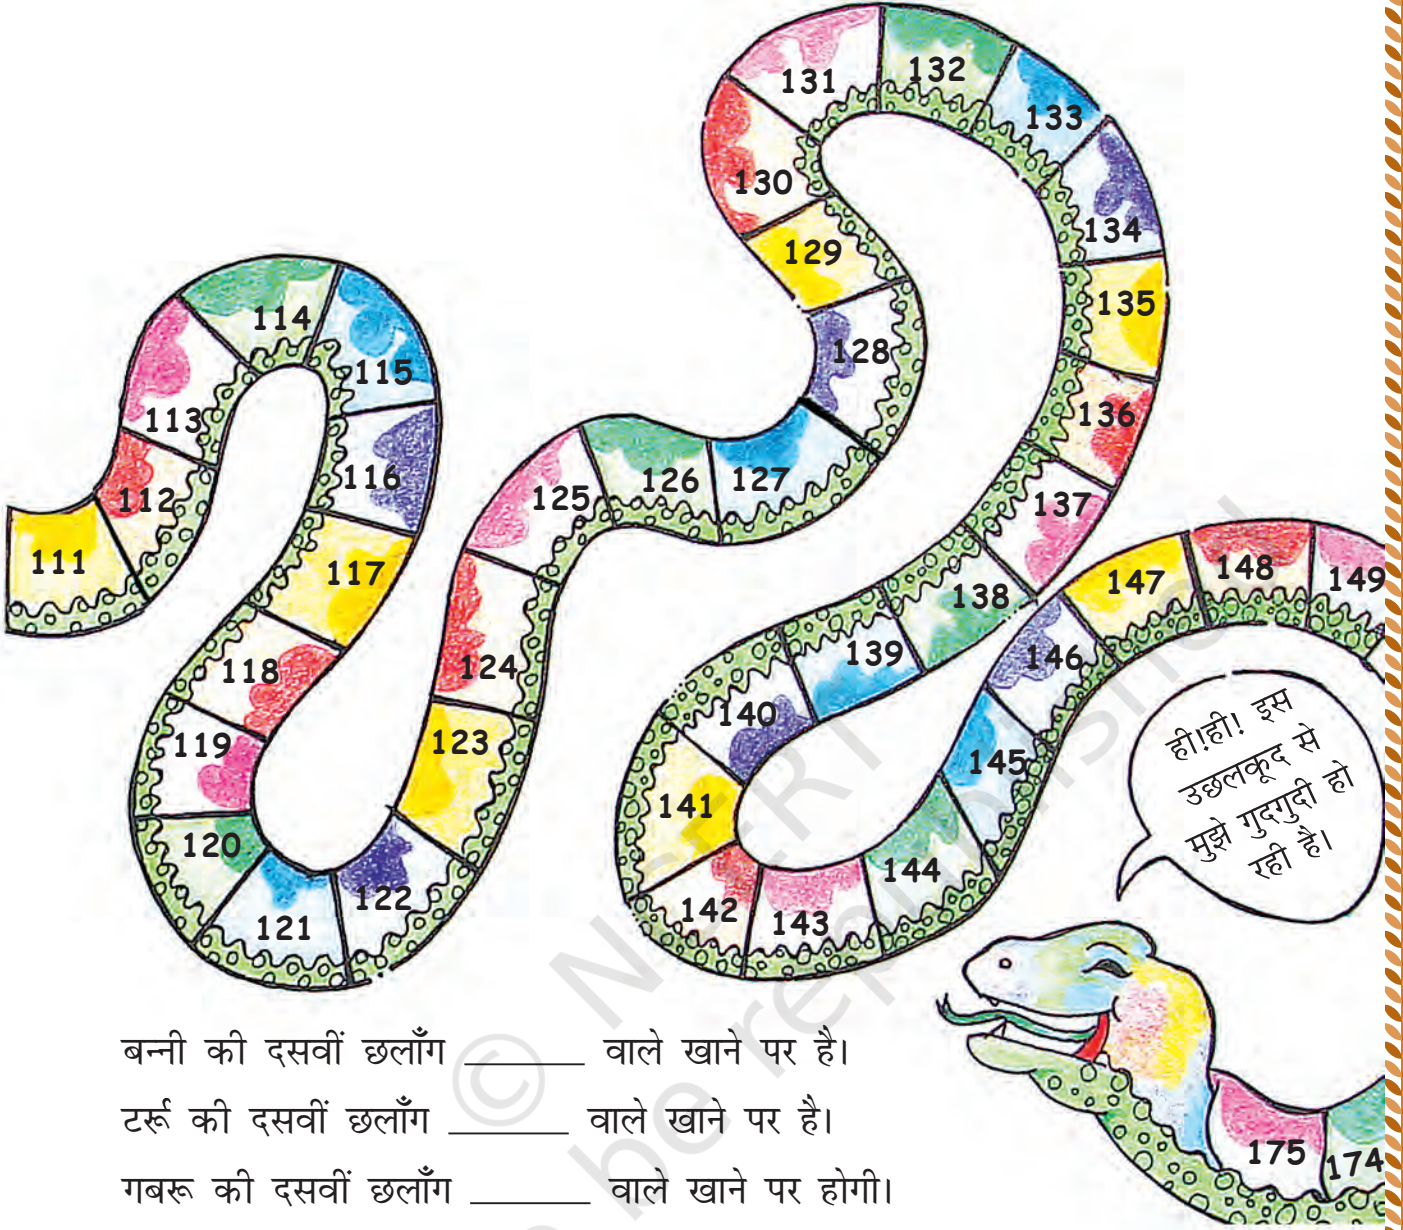 111
112
113
114
115
116
117
118
119
120
121
122
123
124
125
126
127
128
129
130
131
132
133
134
135
136
137
138
139
140
141
142
143
144
145
146
147
148
149
ही!ही! इस
उछलकूद से
मुझे गुदगुदी हो
रही है।
175
174
बन्नी की दसवीं छलाँग ________ वाले खाने पर है।
टर्रू की दसवीं छलाँग ________ वाले खाने पर है।
गबरू की दसवीं छलाँग ________ वाले खाने पर होगी।
© NCERT
be republished